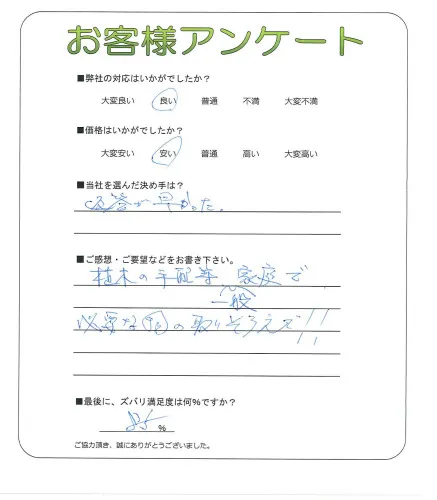 お客様アンケート
■弊社の対応はいかがでしたか?
大変良い 良い 普通 不満 大変不満
■価格はいかがでしたか?
大変安い 安い 普通 高い 大変高い
■当社を選んだ決め手は?
応答が早かった。
■ご感想・ご要望などをお書き下さい。
植木の手配等、家庭で
一般
必要な の取りそろえを!!
■最後に、ズバリ満足度は何%ですか?
85 %
ご協力頂き、誠にありがとうございました。